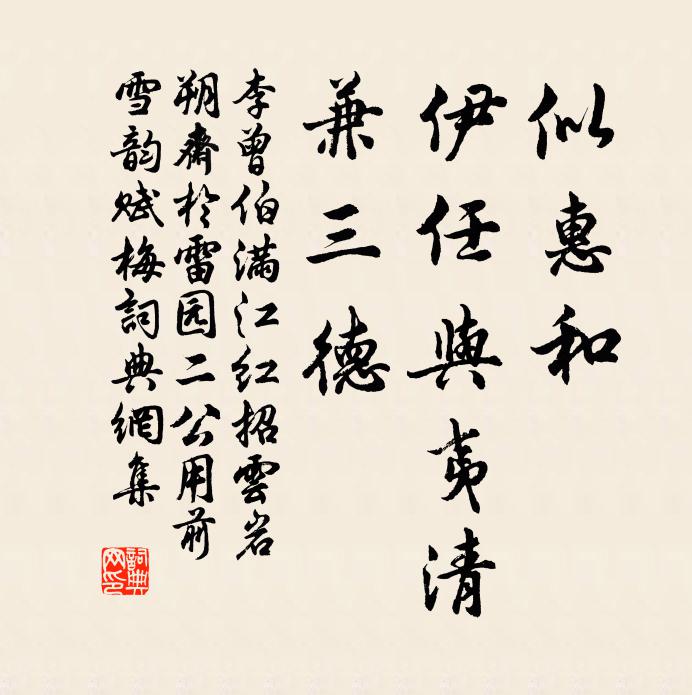 似惠和
伊任與夷清
兼三德
李曾伯滿江红招雲岩
朔齋於雷园二公用前
雪韵赋梅詞典網集
詞典网印